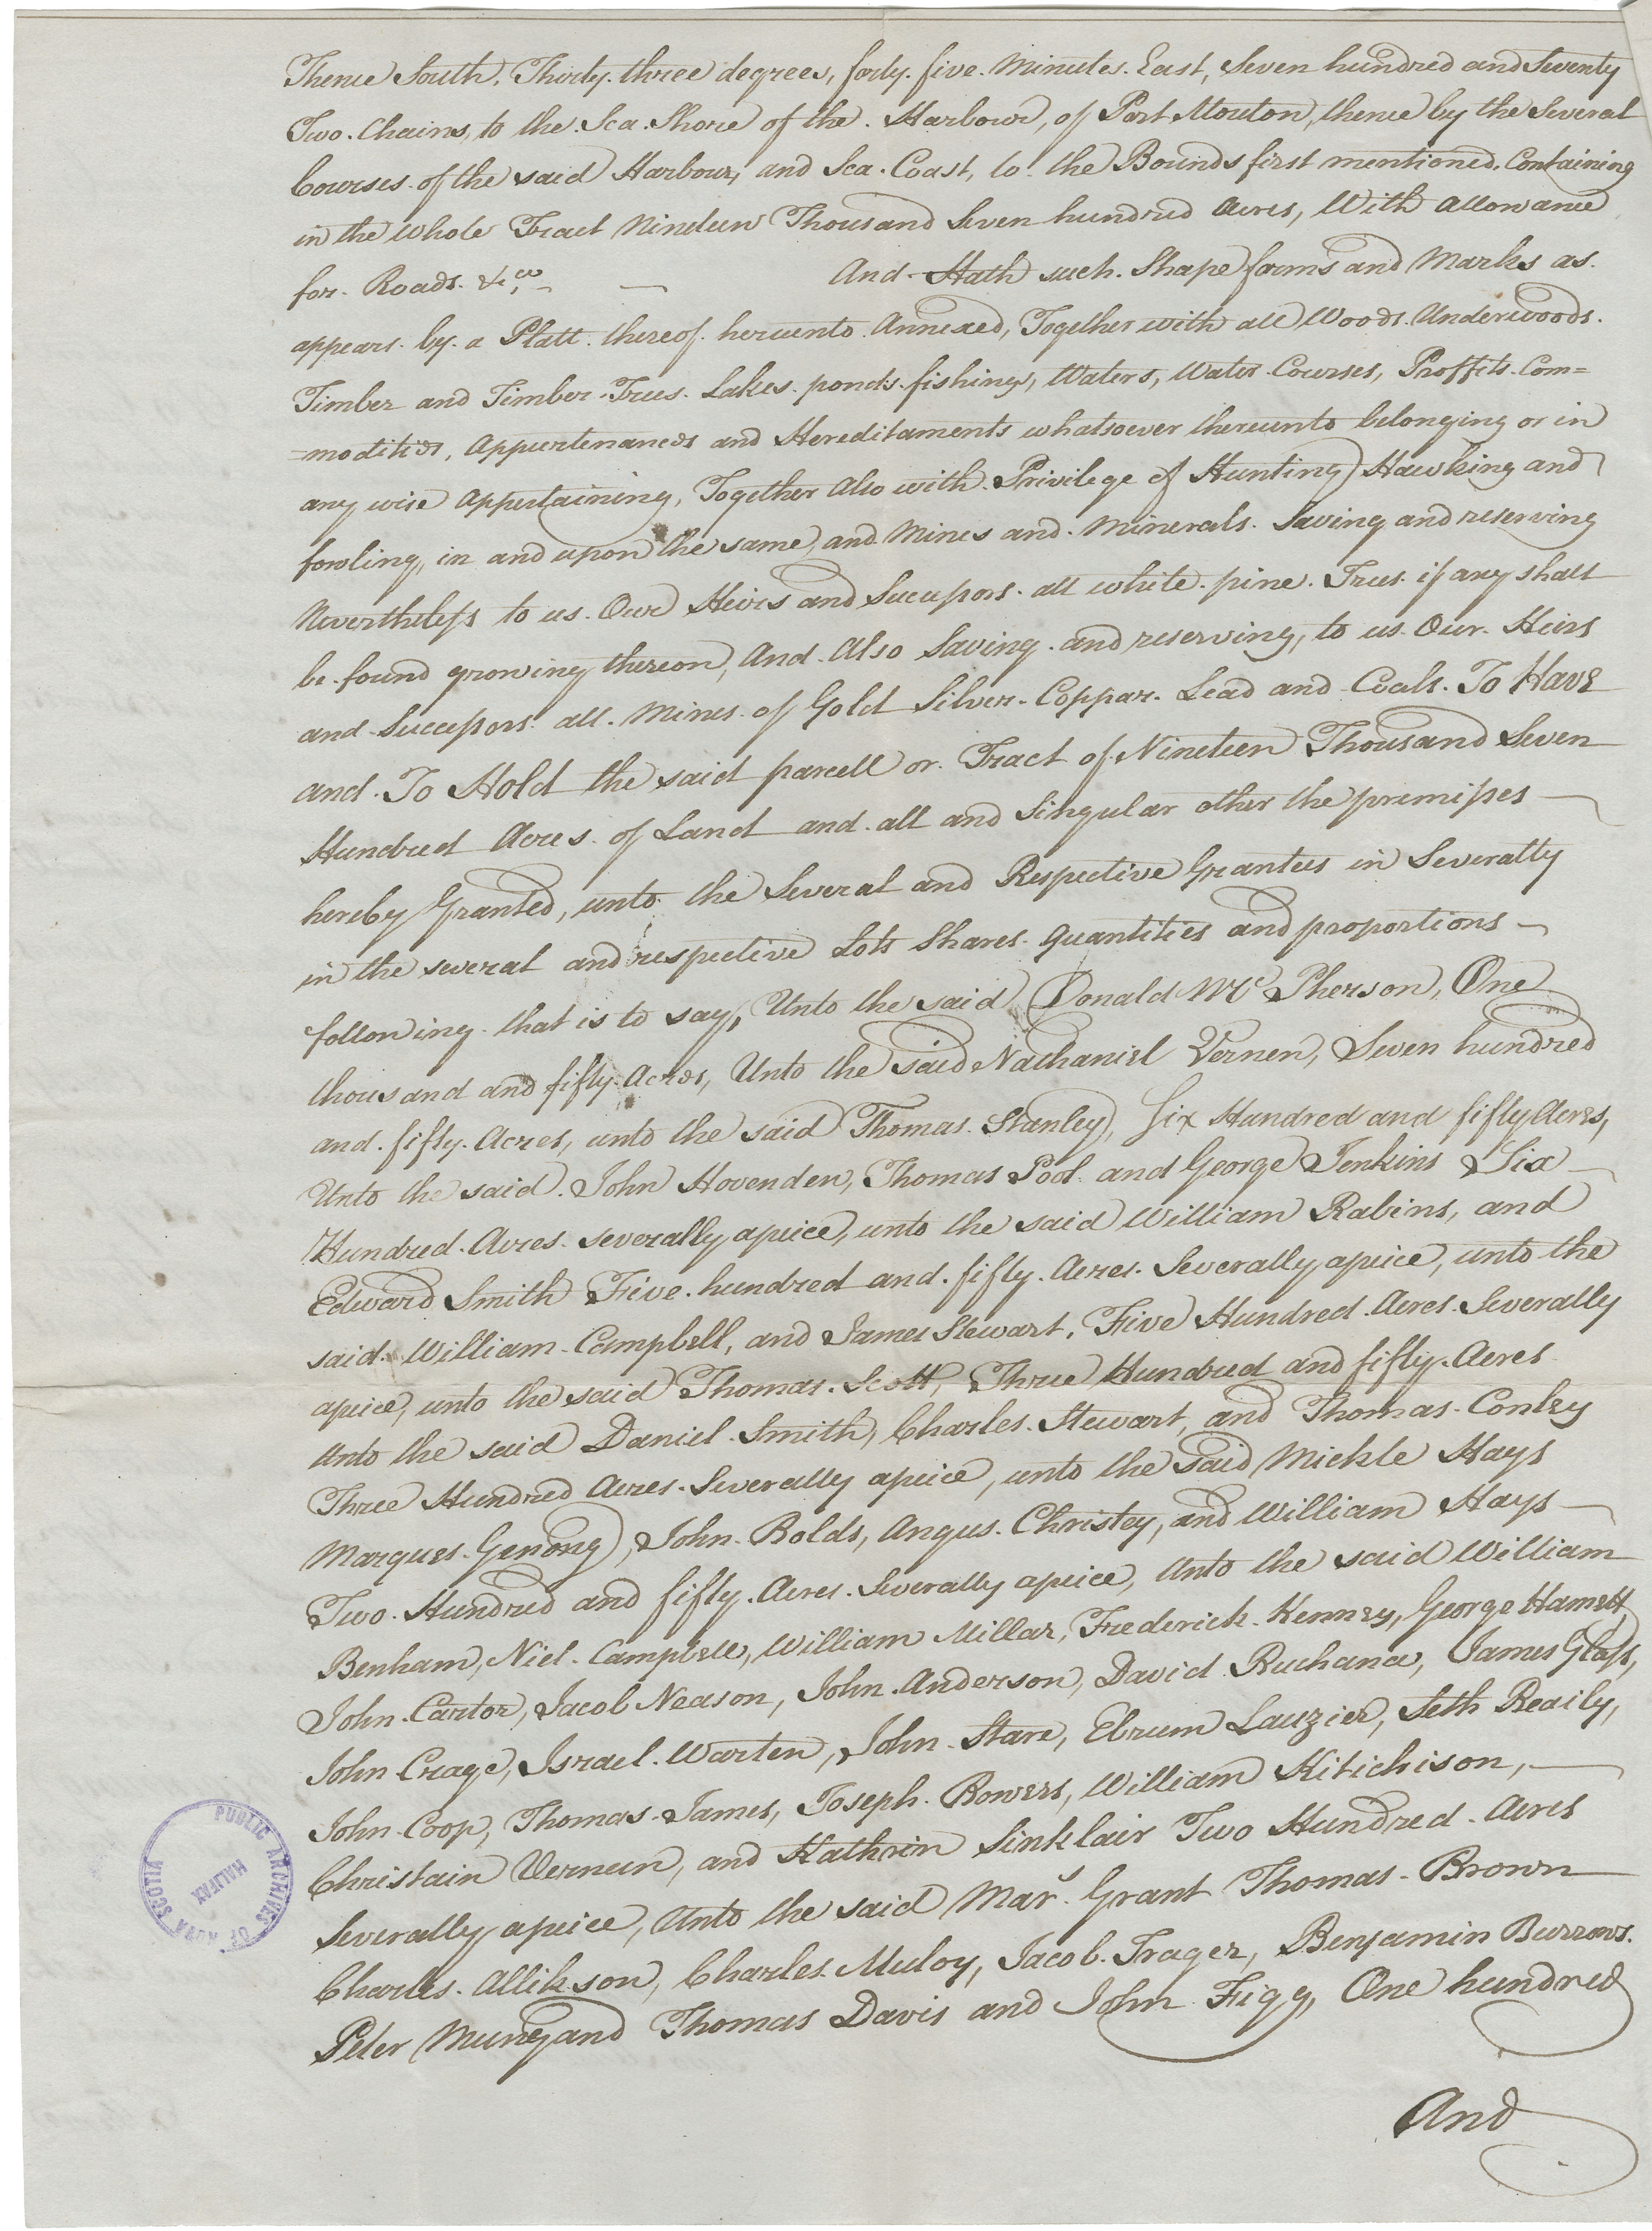 Thence South, Thirty three degrees, forty five Minutes East, Seven hundred and Seventy
Two Chains, to the Sea Shore of the Harbour, of Port Mouton, thence by the Several
Courses of the said Harbour, and Sea Coast, to the Bounds first mentioned, Containing
in the whole Tract Nineteen Thousand Seven hundred Acres, With Allowance
for Roads &ca
And Hath such Shape forms and Marks as
appears by a Platt thereof hereunto Annexed, Together with all Woods Underwoods.
Timber and Timber Trees Lakes ponds fishings, Waters, Water Courses, Proffits Com=
=modities, Appurtenances and Hereditaments whatsoever thereunto belonging or in
any wise Appertaining, Together Also with Privilege of Hunting Hawking and
fowling, in and upon the same, and Mines and Minerals. Saving and reserving
Nevertheless to us Our Heirs and Successors all white pine Trees if any shall
be found growing thereon, And Also Saving and reserving, to us Our Heirs
and Successors all Mines of Gold Silver Coppar Lead and Coals. To Have
and To Hold the said parcell or Tract of Nineteen Thousand Seven
Hundred Acres of Land and all and Singular other the premisses
hereby Granted, unto the Several and Respective Grantees in Severalty
in the several and respective Lots Shares quantities and proportions
following that is to say, Unto the said Donald Mc Pherson, One
thousand and fifty Acres, Unto the said Nathaniel Vernen, Seven hundred
and fifty Acres, unto the said Thomas Stanley, Six Hundred and fifty Acres,
Unto the said John Hovenden, Thomas Pool and George Jenkins Six
Hundred Acres severally apeice, unto the said William Rabins, and
Edward Smith Five hundred and fifty Acres Severally apeice, unto the
said William Campbell, and James Stewart, Five Hundred Acres Severally
apeice, unto the said Thomas Scott, Three Hundred and fifty Acres
Unto the said Daniel Smith, Charles Stewart, and Thomas Conley
Three Hundred Acres Severally apeice, unto the said Mickle Hays
Marques Genong, John Bolds, Angus Christey, and William Hays
Two Hundred and fifty Acres Severally apeice, Unto the said William
Benham, Niel Campbell, William Millar, Frederick Kenney, George Hamett
John Cartor, Jacob Neason, John Anderson, David Buchana, James Glass,
John Crage, Israel Warten, John Stare, Ebrum Lauzier, Seth Reaily,
John Coop, Thomas James, Joseph Bowers, William Kitichison,
Christain Verneen, and Kathrin Sinklair Two Hundred Acres
Severally apeice, Unto the said Mars Grant Thomas Brown
Charles Allikson, Charles Muloy, Jacob Trager, Benjamin Burrows.
Peter and Thomas Davis and John Figg, One hundred
And
PUBLIC ARCHIVES OF NOVA SCOTIA
HALIFAX